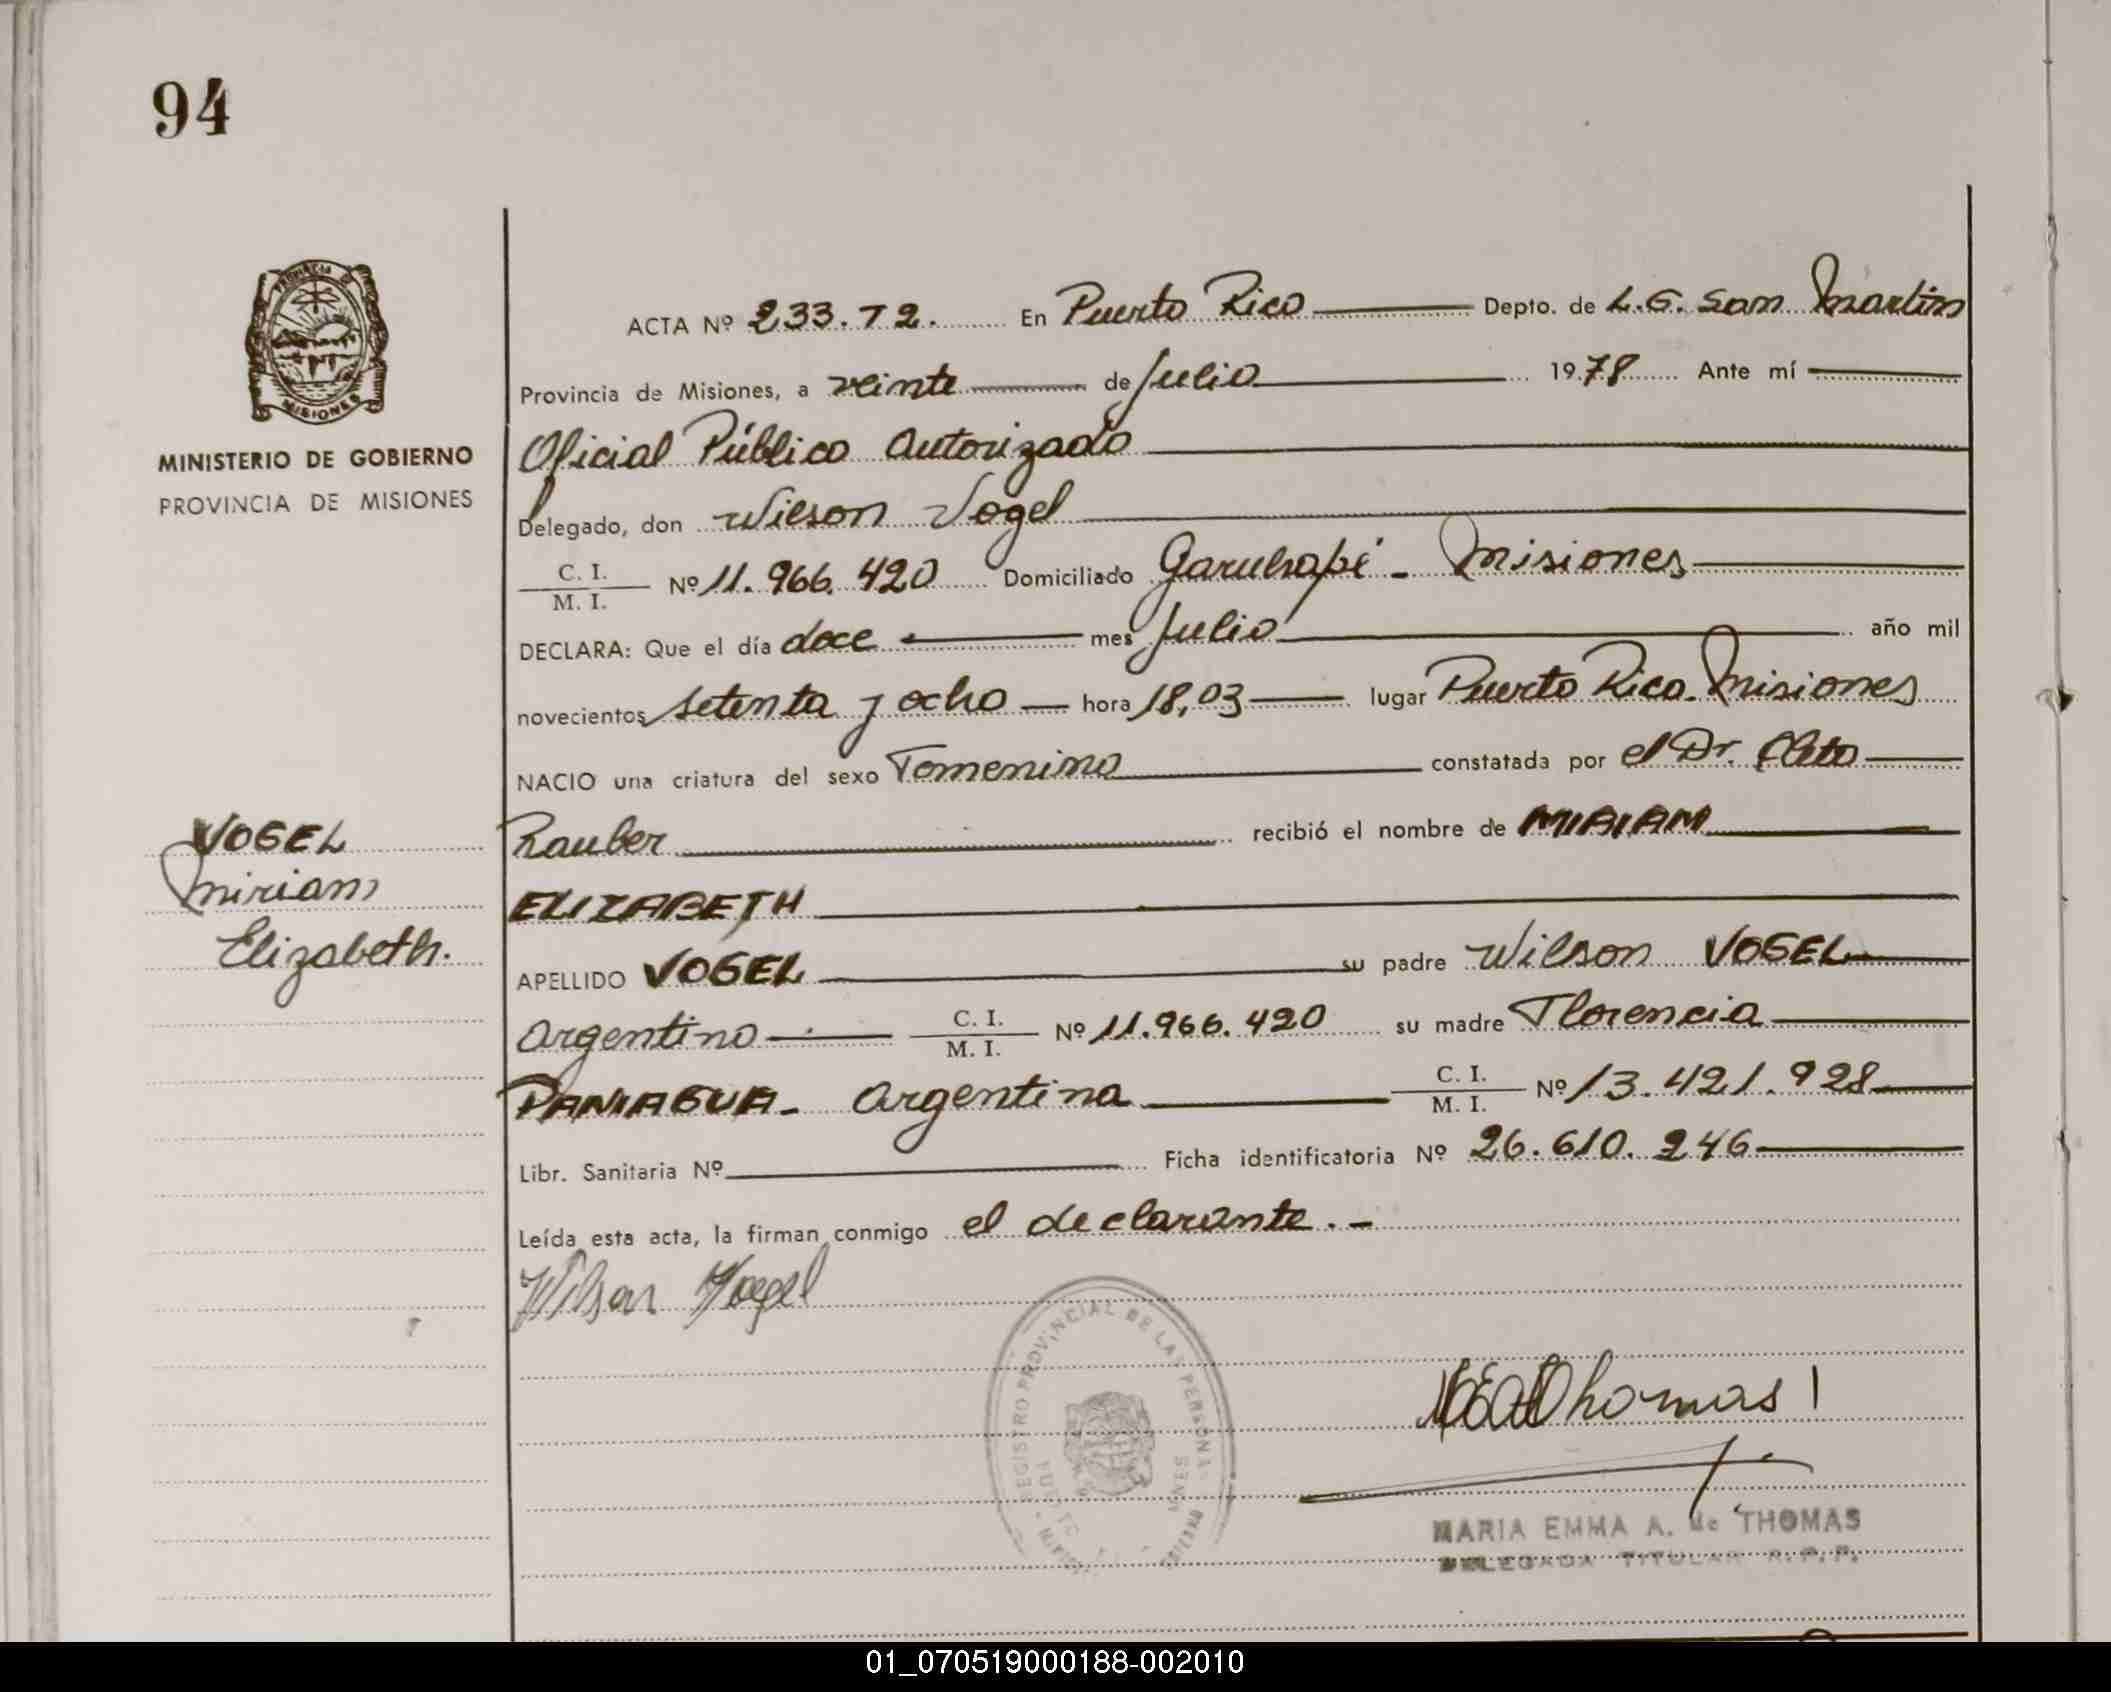 94
PROVINCIA DE
MISIONES
MINISTERIO DE GOBIERNO
PROVINCIA DE MISIONES
ACTA Nº 233.72. En Puerto Rico Depto. de L.G. San Martin
Provincia de Misiones, a veinte de Julio 1978 Ante mí
Oficial Público Autorizado
Delegado, don Wilson Vogel
C. I. / M. I. Nº 11.966.420 Domiciliado Garuhapé - Misiones
DECLARA: Que el día doce mes Julio año mil
novecientos setenta y ocho hora 18,03 lugar Puerto Rico. Misiones
NACIO una criatura del sexo Femenino constatada por el Dr.
Rauber recibió el nombre de MIRIAM
ELIZABETH
APELLIDO VOGEL su padre Wilson VOGEL
Argentino C. I. / M. I. Nº 11.966.420 su madre Florencia
PANIAGUA - Argentina C. I. / M. I. Nº 13.421.928
Libr. Sanitaria Nº Ficha identificatoria Nº 26.610.246
Leída esta acta, la firman conmigo el declarante. -
VOGEL
Miriam
Elizabeth.
Wilson Vogel
REGISTRO PROVINCIAL DE LAS PERSONAS
Thomas
MARIA EMMA A. de THOMAS
DELEGADA TITULAR R.P.P.
01_070519000188-002010